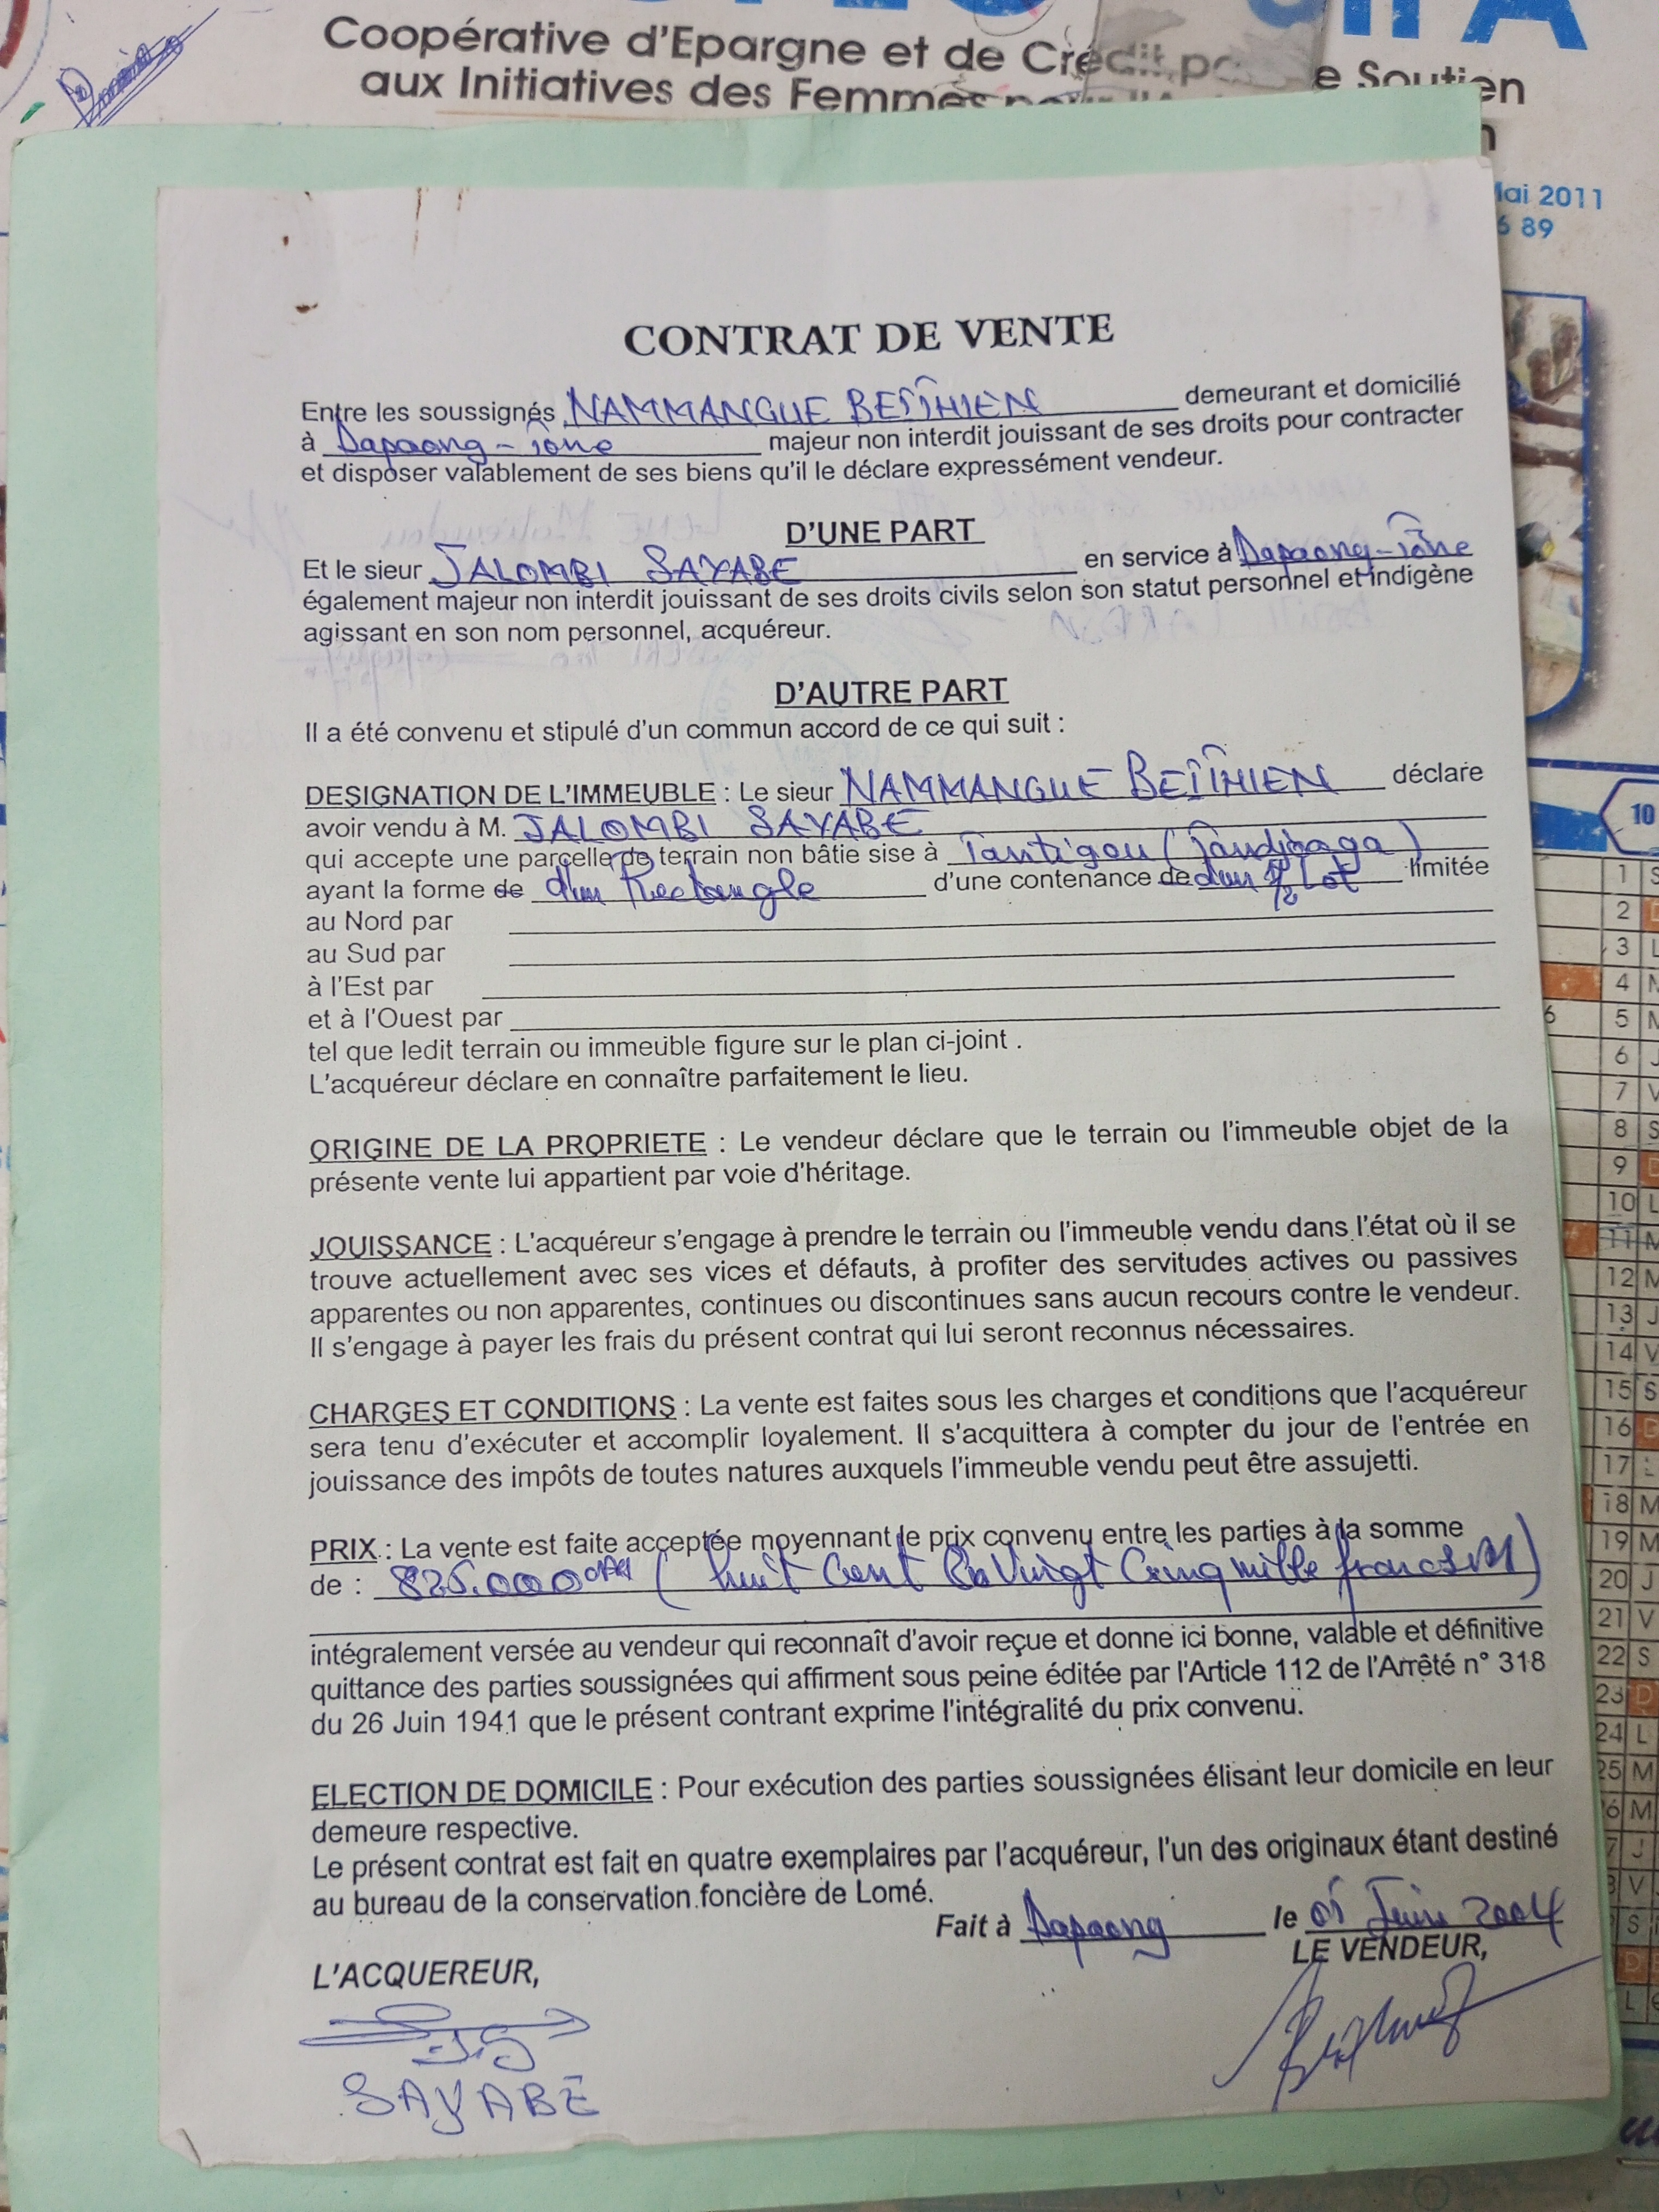 Coopérative d'Epargne et de Crédit po e Soutien
aux Initiatives des Femmes
Mai 2011
6 89
CONTRAT DE VENTE
Entre les soussignés NAMMANGUE demeurant et domicilié
à Dapaong - Tône majeur non interdit jouissant de ses droits pour contracter
et disposer valablement de ses biens qu'il le déclare expressément vendeur.
D'UNE PART
Et le sieur JALOMBI SAYABE en service à Dapaong-Tône
également majeur non interdit jouissant de ses droits civils selon son statut personnel et indigène
agissant en son nom personnel, acquéreur.
D'AUTRE PART
Il a été convenu et stipulé d'un commun accord de ce qui suit :
DESIGNATION DE L'IMMEUBLE : Le sieur NAMMANGUE déclare
avoir vendu à M. JALOMBI SAYABE
qui accepte une parcelle de terrain non bâtie sise à Tantigou
ayant la forme de d'un Rectangle d'une contenance de d'un 1/2 Lot limitée
au Nord par
au Sud par
à l'Est par
et à l'Ouest par
tel que ledit terrain ou immeuble figure sur le plan ci-joint .
L'acquéreur déclare en connaître parfaitement le lieu.
ORIGINE DE LA PROPRIETE : Le vendeur déclare que le terrain ou l'immeuble objet de la
présente vente lui appartient par voie d'héritage.
JOUISSANCE : L'acquéreur s'engage à prendre le terrain ou l'immeuble vendu dans l'état où il se
trouve actuellement avec ses vices et défauts, à profiter des servitudes actives ou passives
apparentes ou non apparentes, continues ou discontinues sans aucun recours contre le vendeur.
Il s'engage à payer les frais du présent contrat qui lui seront reconnus nécessaires.
CHARGES ET CONDITIONS : La vente est faites sous les charges et conditions que l'acquéreur
sera tenu d'exécuter et accomplir loyalement. Il s'acquittera à compter du jour de l'entrée en
jouissance des impôts de toutes natures auxquels l'immeuble vendu peut être assujetti.
PRIX : La vente est faite acceptée moyennant le prix convenu entre les parties à la somme
de : 825.000 ( huit Cent Vingt Cinq mille francs )
intégralement versée au vendeur qui reconnaît d'avoir reçue et donne ici bonne, valable et définitive
quittance des parties soussignées qui affirment sous peine éditée par l'Article 112 de l'Arrêté n° 318
du 26 Juin 1941 que le présent contrant exprime l'intégralité du prix convenu.
ELECTION DE DOMICILE : Pour exécution des parties soussignées élisant leur domicile en leur
demeure respective.
Le présent contrat est fait en quatre exemplaires par l'acquéreur, l'un des originaux étant destiné
au bureau de la conservation foncière de Lomé.
Fait à Dapaong le Juin 2004
L'ACQUEREUR, LE VENDEUR,
SAYABE